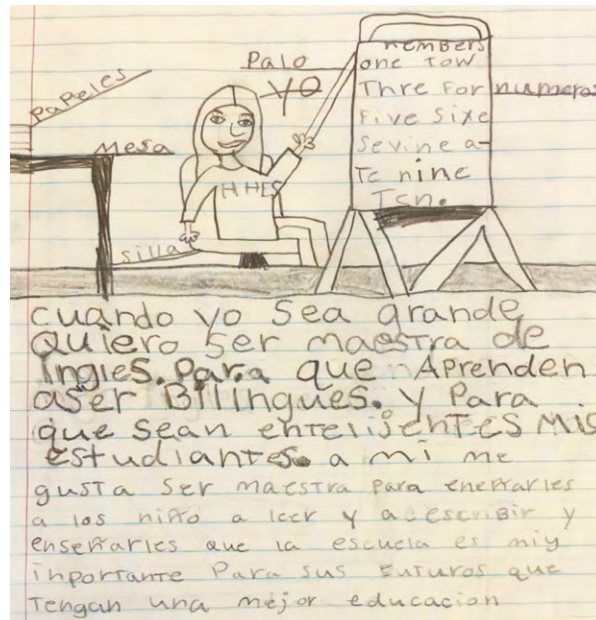 Palo
nembers
one Tow
Thre For numeros
Five Sixe
Sevine a-
Te nine
Ten.
Papeles
yo
Mesa
H HES
Silla
cuando yo Sea grande
Quiero ser maestra de
ingles. Para que Aprenden
aser Bilingues. y Para
que sean entelijentes Mis
estudiantes. a mi me
gusta ser maestra Para eneñarles
a los niño a leer y a escribir y
enseñarles que la escuela es miy
importante Para sus futuros que
Tengan una mejor educacion